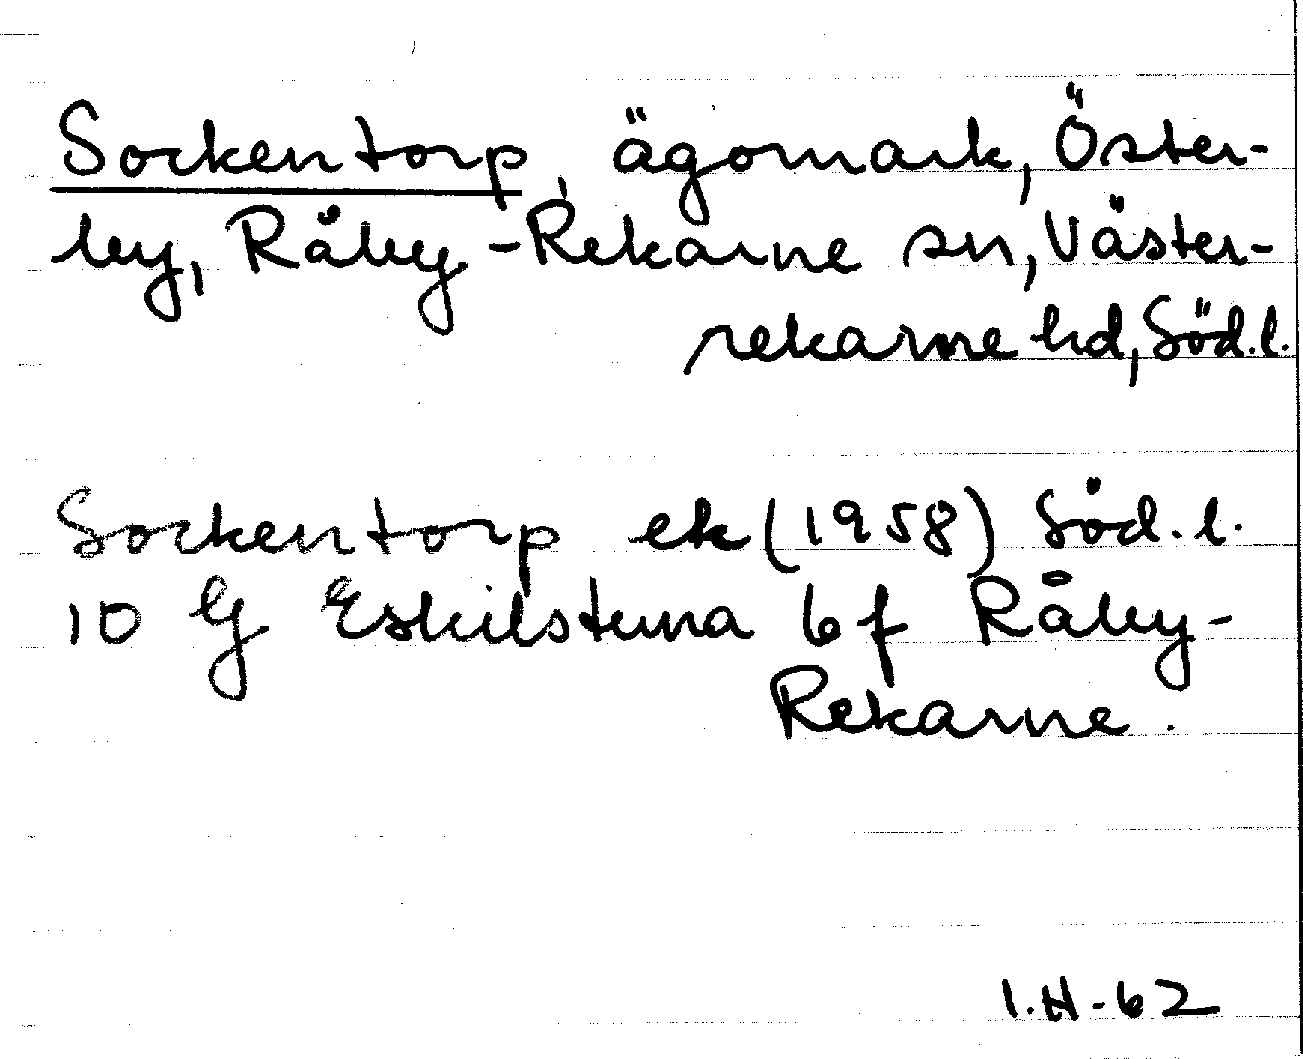 Sockentorp, ägomark, Öster-
by, Råby-Rekarne sn, Väster-
rekarne hd, Söd.l.
Sockentorp ek (1958) Söd.l.
10 G Eskilstuna 6f Råby-
Rekarne.
I.H-62